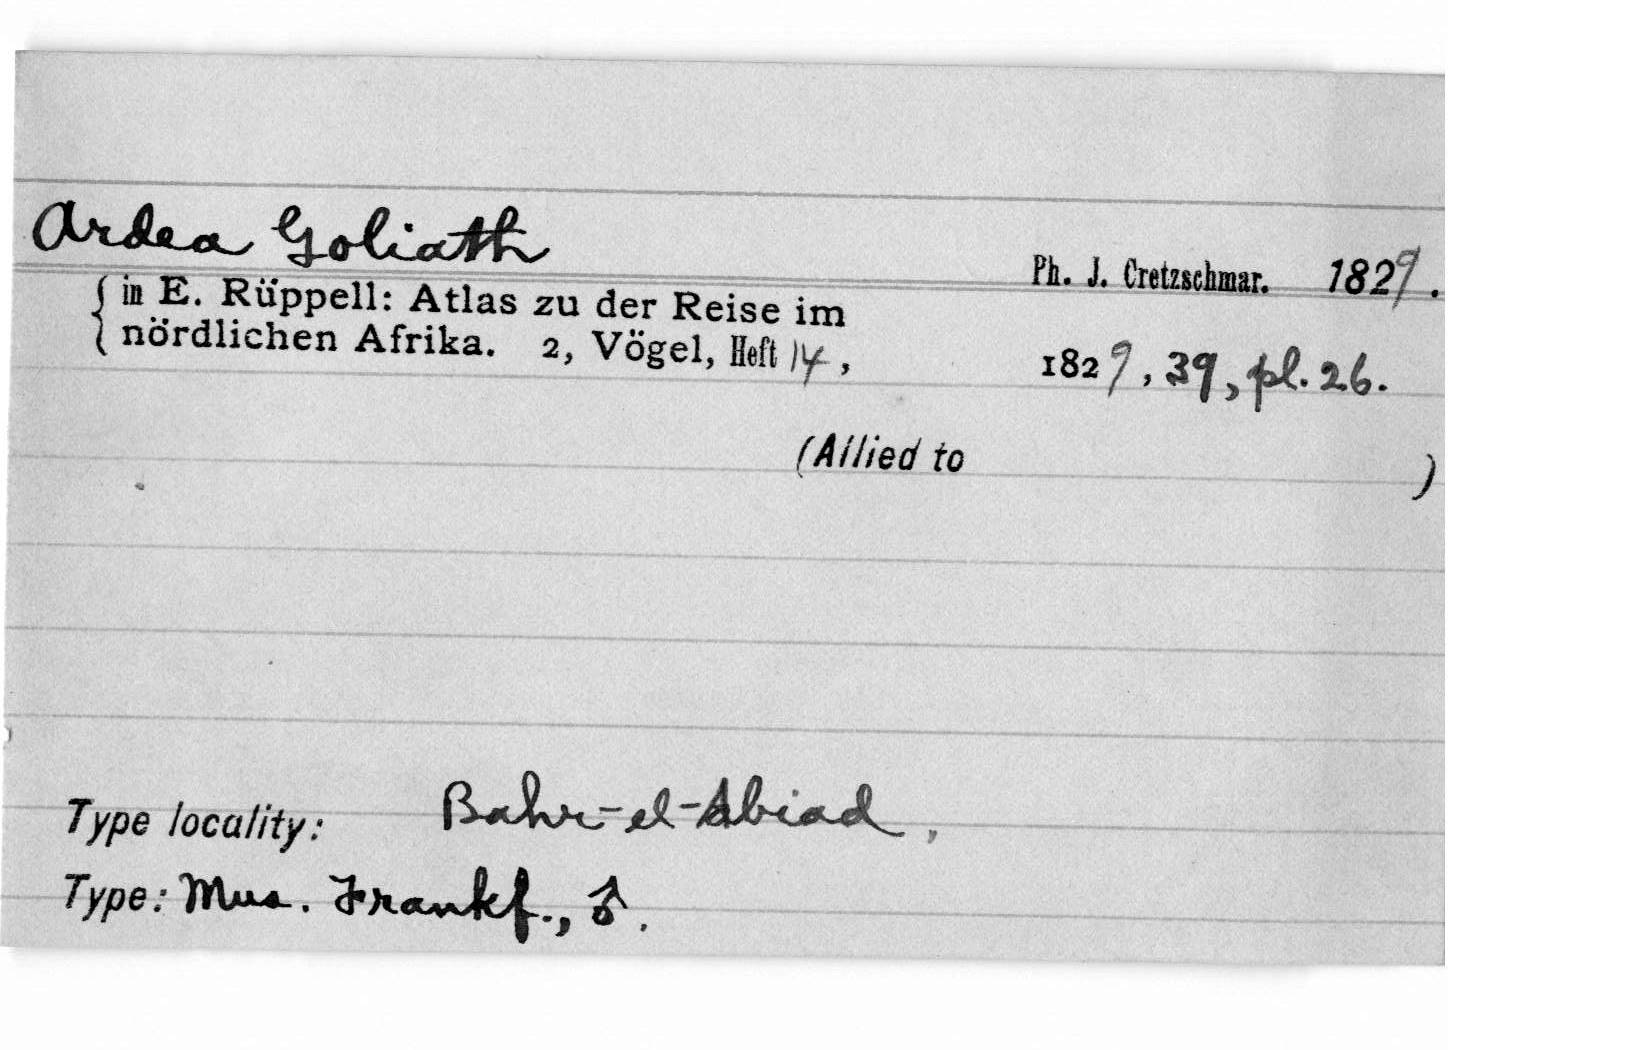 Ardea Goliath
Ph. J. Cretzschmar. 1829.
{ in E. Rüppell: Atlas zu der Reise im
nördlichen Afrika. 2, Vögel, Heft 14, 1829, 39, pl. 26.
(Allied to )
Type locality: Bahr-el-Abiad,
Type: Mus. Frankf., ♂.